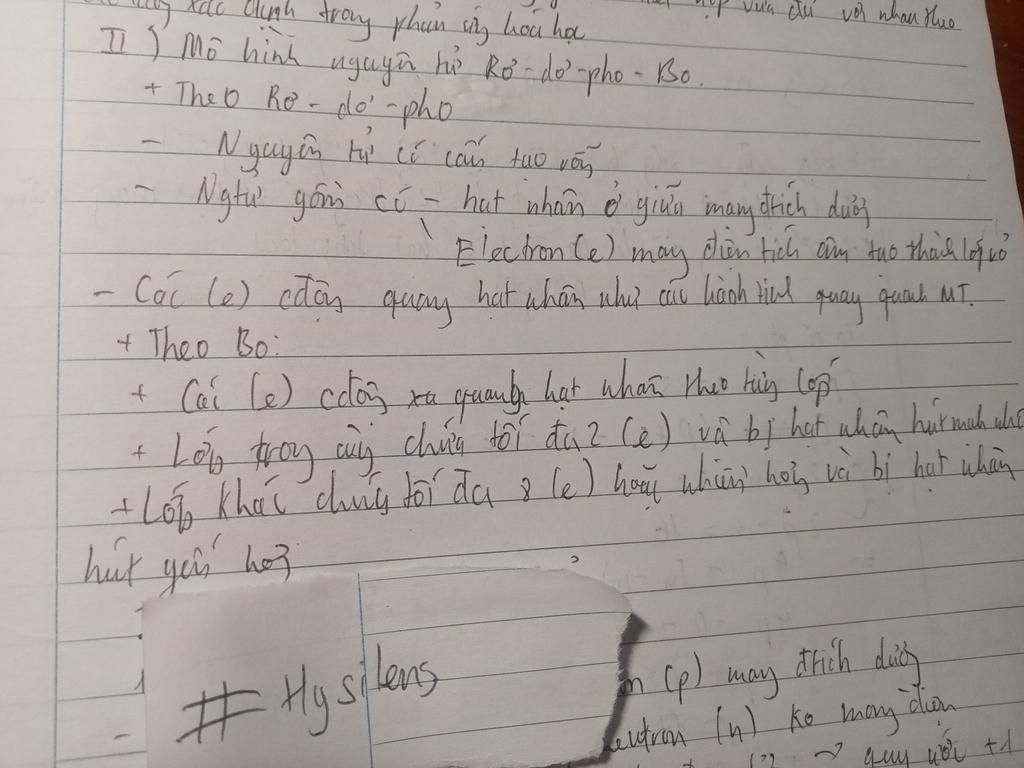 xác định trong phản ứng hoá học vừa đủ với nhau theo
II) Mô hình nguyên tử Rơ-dơ-pho-Bo.
+ Theo Rơ-dơ-pho
- Nguyên tử có cấu tạo rỗng
- Ngtử gồm có - hạt nhân ở giữa mang đtích dương
\ Electron (e) mang điện tích âm tạo thành lớp vỏ
- Các (e) cđộng quang hạt nhân như các hành tinh quay quanh MT.
+ Theo Bo:
+ Các (e) cđộng xa quanh hạt nhân theo từng lớp
+ Lớp trong cùng chứa tối đa 2 (e) và bị hạt nhân hút mạnh nhất
+ Lớp khác chứa tối đa 8 (e) hoặc nhiều hơn và bị hạt nhân
hút yếu hơn
# Hysilens
(p) mang đtích dương
neutron (n) ko mang điện
→ quy ước +1